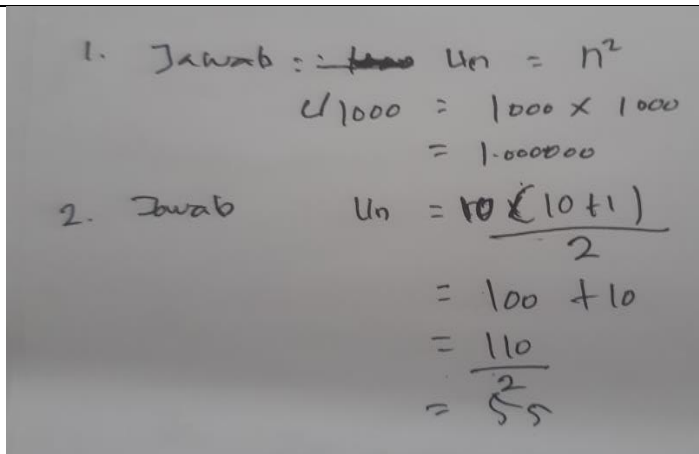 1. Jawab : Un = n²
U1000 = 1000 x 1000
= 1.000000
2. Jawab Un = 10 x (10+1)
2
= 100 + 10
= 110
2
= 55